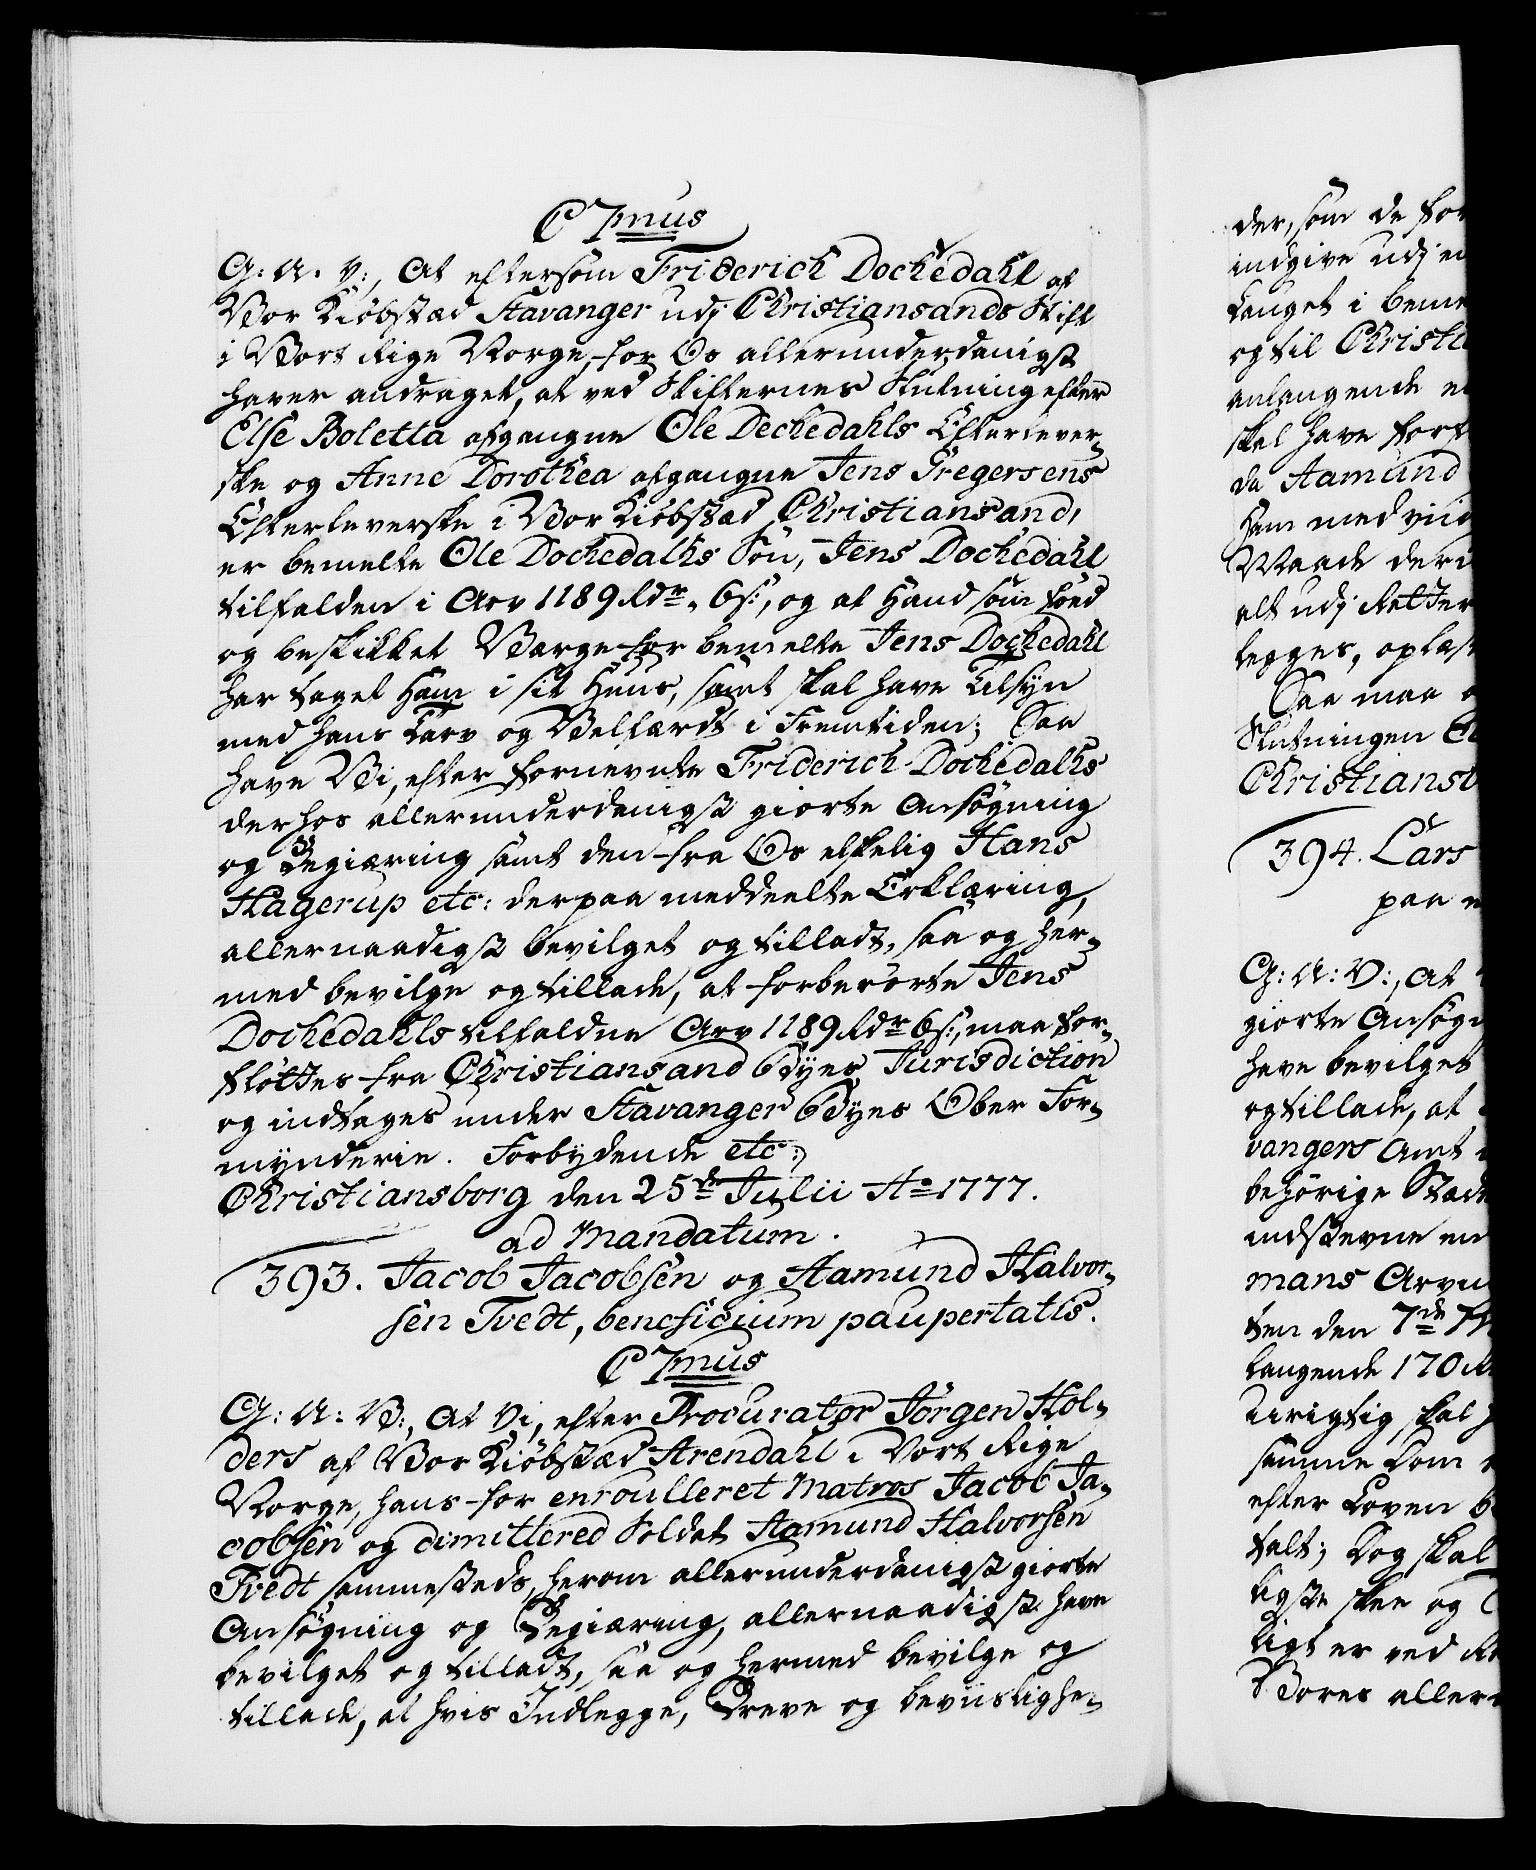 C 7mus
G: A: V:, At eftersom Friderich Dochedahl af
Vor Kiöbstæd Stavanger udj Christiansands Stift
i Vort Rige Norge, for Os allerunderdanigst
haver andraget, at ved Skifternes Slutning efter
Else Boletta afgangne Ole Dechedahls Efterlever-
ske og Anne Dorothea afgangne Jens Gregersens
Efterleverske i Vor Kiöbstæd Christiansand,
er bemelte Ole Dochedalhs Sön, Jens Dochedahl
tilfalden i Arv 1189 Rdr. 6 s:, og at Hand som föed
og beskikket Værge for bemelte Jens Dochedahl
har taget Ham i sit Huus, samt skal have Tilsyn
med hans Tarv og Velfærdt i Fremtiden; Saa
have Vi, efter fornevnte Friderich Dochedalhs
derhos allerunderdanigst giorte Ansögning
og Begiæring samt den fra Os elskelig Hans
Hagerup etc: derpaa meddeelte Erklæring,
allernaadigst bevilget og tilladt, saa og her-
med bevilge og tillade, at forberörte Jens
Dochedahls tilfaldne Arv 1189 Rdr 6 s:, maa for-
flöttes fra Christiansand Byes Jurisdiction
og indtages under Stavanger Byes Ober For-
mynderie. Forbydende etc:
Christiansborg den 25de Julii Ao 1777.
ad Mandatum.
393. Jacob Jacobsen og Aamund Halvor-
sen Tvedt, beneficium paupertatis.
C 7mus
G: A: V:, At Vi, efter Procurator Jörgen Hol-
ders af Vor Kiöbstæd Arendahl i Vort Rige
Norge, hans for enroulleret Matros Jacob Ja-
cobsen og dimittered Soldat Aamund Halvorsen
Tvedt sammesteds, herom allerunderdanigst giorte
Ansögning og Begiæring, allernaadigst have
bevilget og tilladt, saa og hermed bevilge og
tillade, at hvis Indlegge, Breve og beviislighe-
der, som de for
indgive udj en
Lauget i beme
og til Christia
anlangende e
skal have forf
da Aamund
Ham med
Maade der
alt udj Retter
legges, oplæs
Saa maa
Slutningen
Christiansb
394. Lars
paa
G: A: V:, At
giorte Ansögn
have bevilget
og tillade, at
vangers Amt
behörige Stæde
indstevne en
mans Arvin
ten den 7de
langende 170 R
Urigtig, skal
samme Dom
efter Loven b
talt; Dog skal
ligste skee og
ligt er ved R
Vores aller